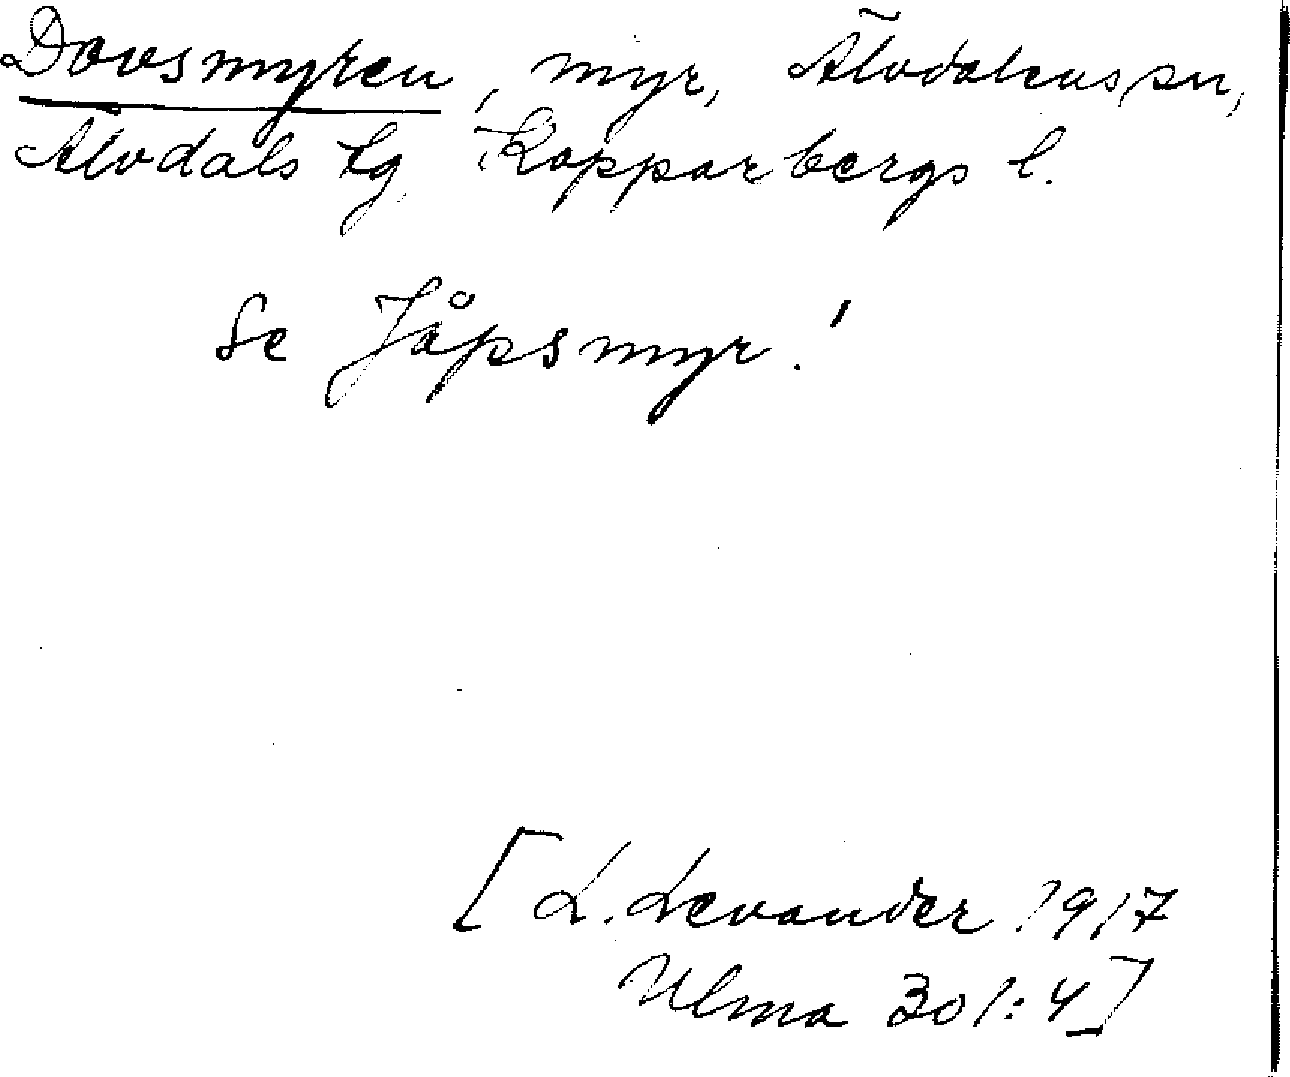 Dovsmyren, myr, Älvdalens sn,
Älvdals tg, Kopparbergs l.
Se Jåpsmyr!
[L. Levander 1917
Ulma 301:4]